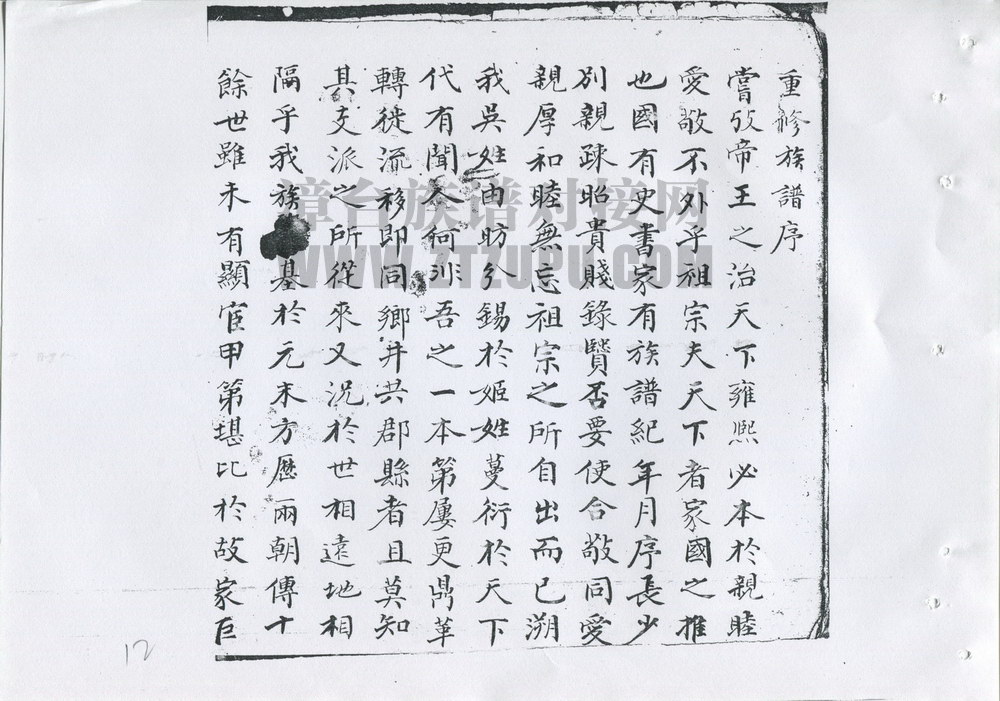 重修族譜序
嘗攷帝王之治天下雍熙必本於親睦
愛敬不外乎祖宗夫天下者家國之推
也國有史書家有族譜紀年月序長少
別親疎昭貴賤錄賢否要使合敬同愛
親厚和睦無忘祖宗之所自出而已溯
我吳姓由昉分錫於姬姓蔓衍於天下
代有聞人何非吾之一本第屢更鼎革
轉徙流移即同鄉井共郡縣者且莫知
其支派之所從來又況於世相遠地相
隔乎我族基於元末方歷兩朝傳十
餘世雖未有顯宦甲第堪比於故家巨
漳台族谱对接网
WWW.ZTZUPU.COM
12